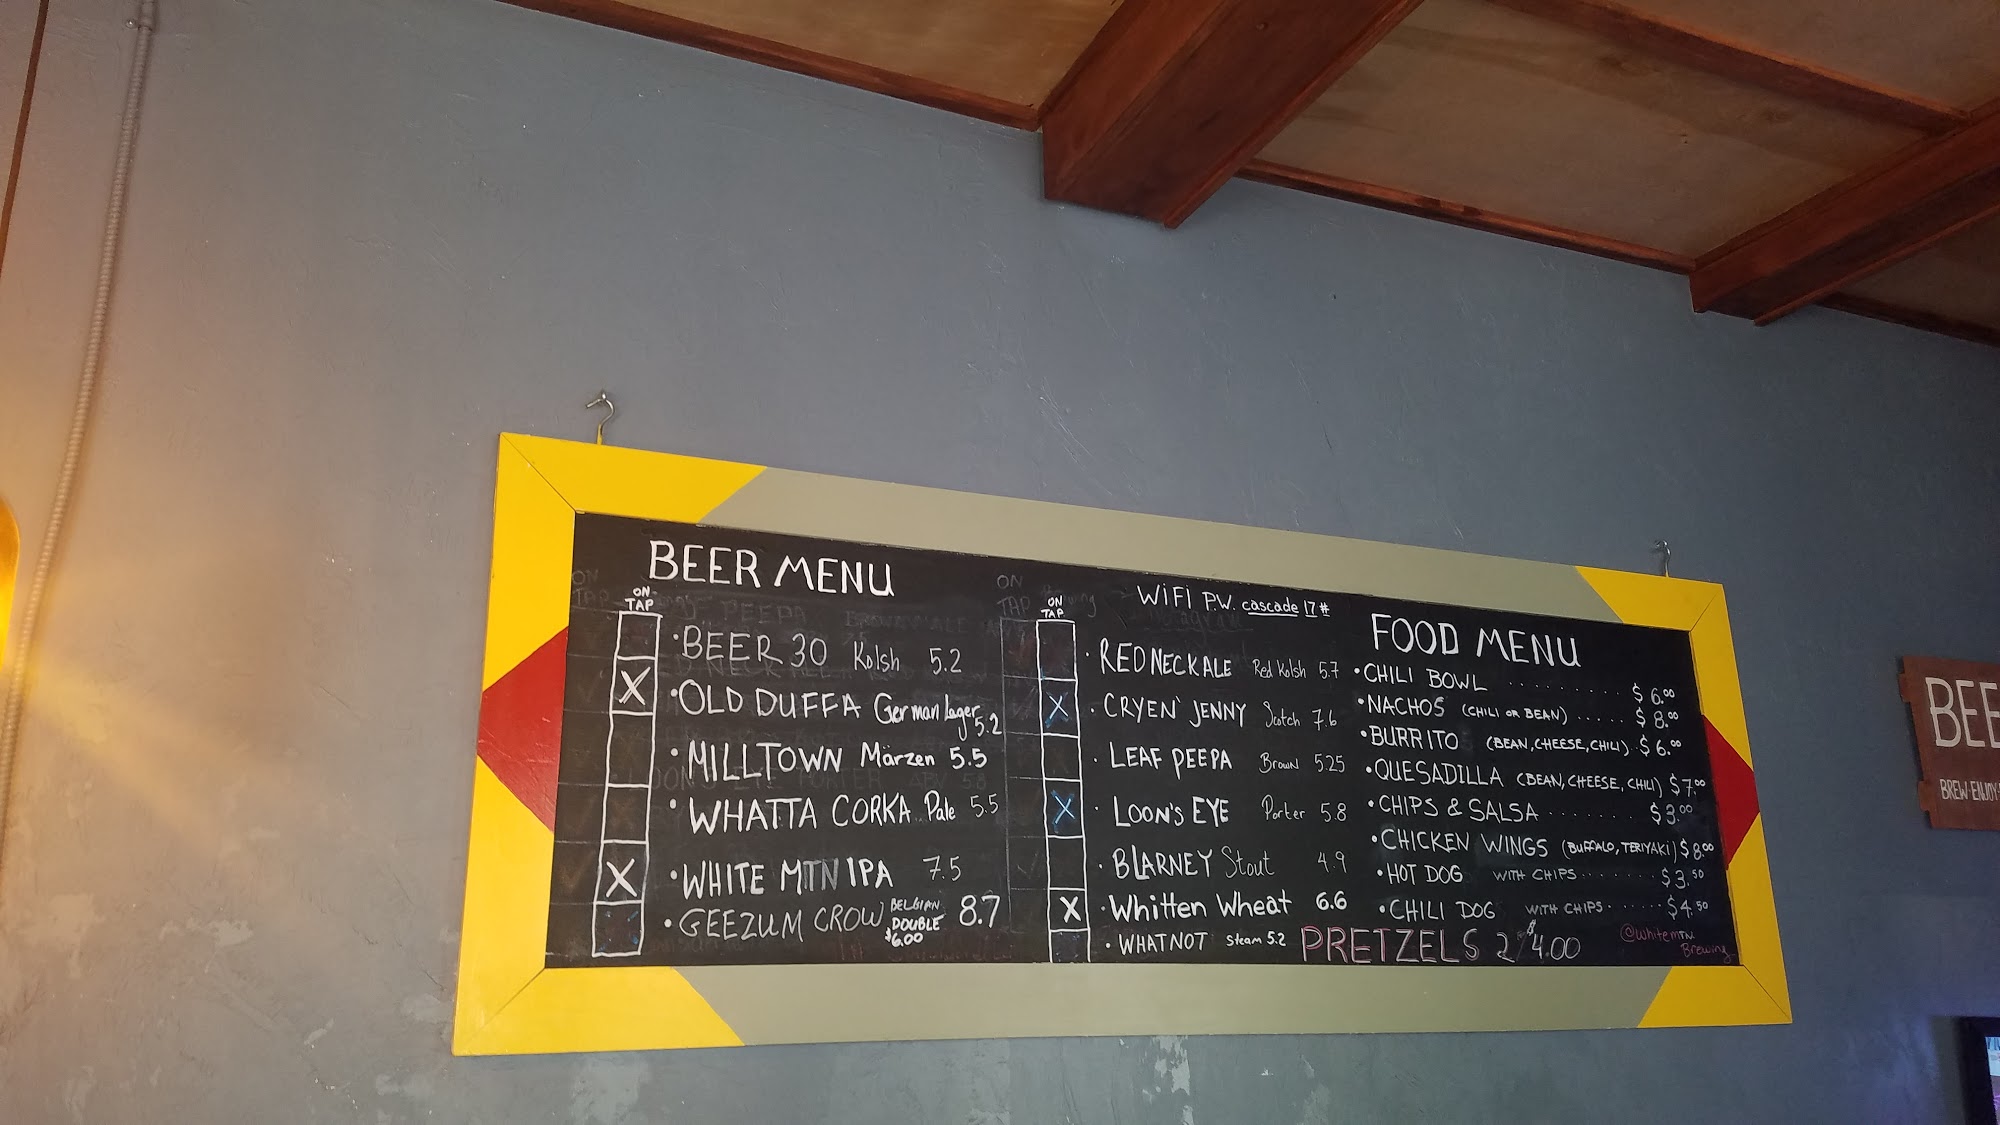 BEER MENU
ON TAP
X
X
• BEER 30 Kolsh 5.2
• OLD DUFFA German lager 5.2
• MILLTOWN Märzen 5.5
• WHATTA CORKA Pale 5.5
• WHITE MTN IPA 7.5
• GEEZUM CROW BELGIAN DOUBLE $6.00 8.7
WIFI P.W. cascade 17#
ON TAP
X
X
X
• REDNECK ALE Red Kolsh 5.7
• CRYEN' JENNY Scotch 7.6
• LEAF PEEPA Brown 5.25
• LOON'S EYE Porter 5.8
• BLARNEY Stout 4.9
• Whitten Wheat 6.6
• WHATNOT Steam 5.2
FOOD MENU
• CHILI BOWL ......... $6.00
• NACHOS (CHILI OR BEAN) ..... $8.00
• BURRITO (BEAN, CHEESE, CHILI) . $6.00
• QUESADILLA (BEAN, CHEESE, CHILI) $7.00
• CHIPS & SALSA ........ $3.00
• CHICKEN WINGS (BUFFALO, TERIYAKI) $8.00
• HOT DOG WITH CHIPS ....... $3.50
• CHILI DOG WITH CHIPS ..... $4.50
PRETZELS 2/$4.00
@whitemtn Brewing
BEE
BREW·ENJOY·